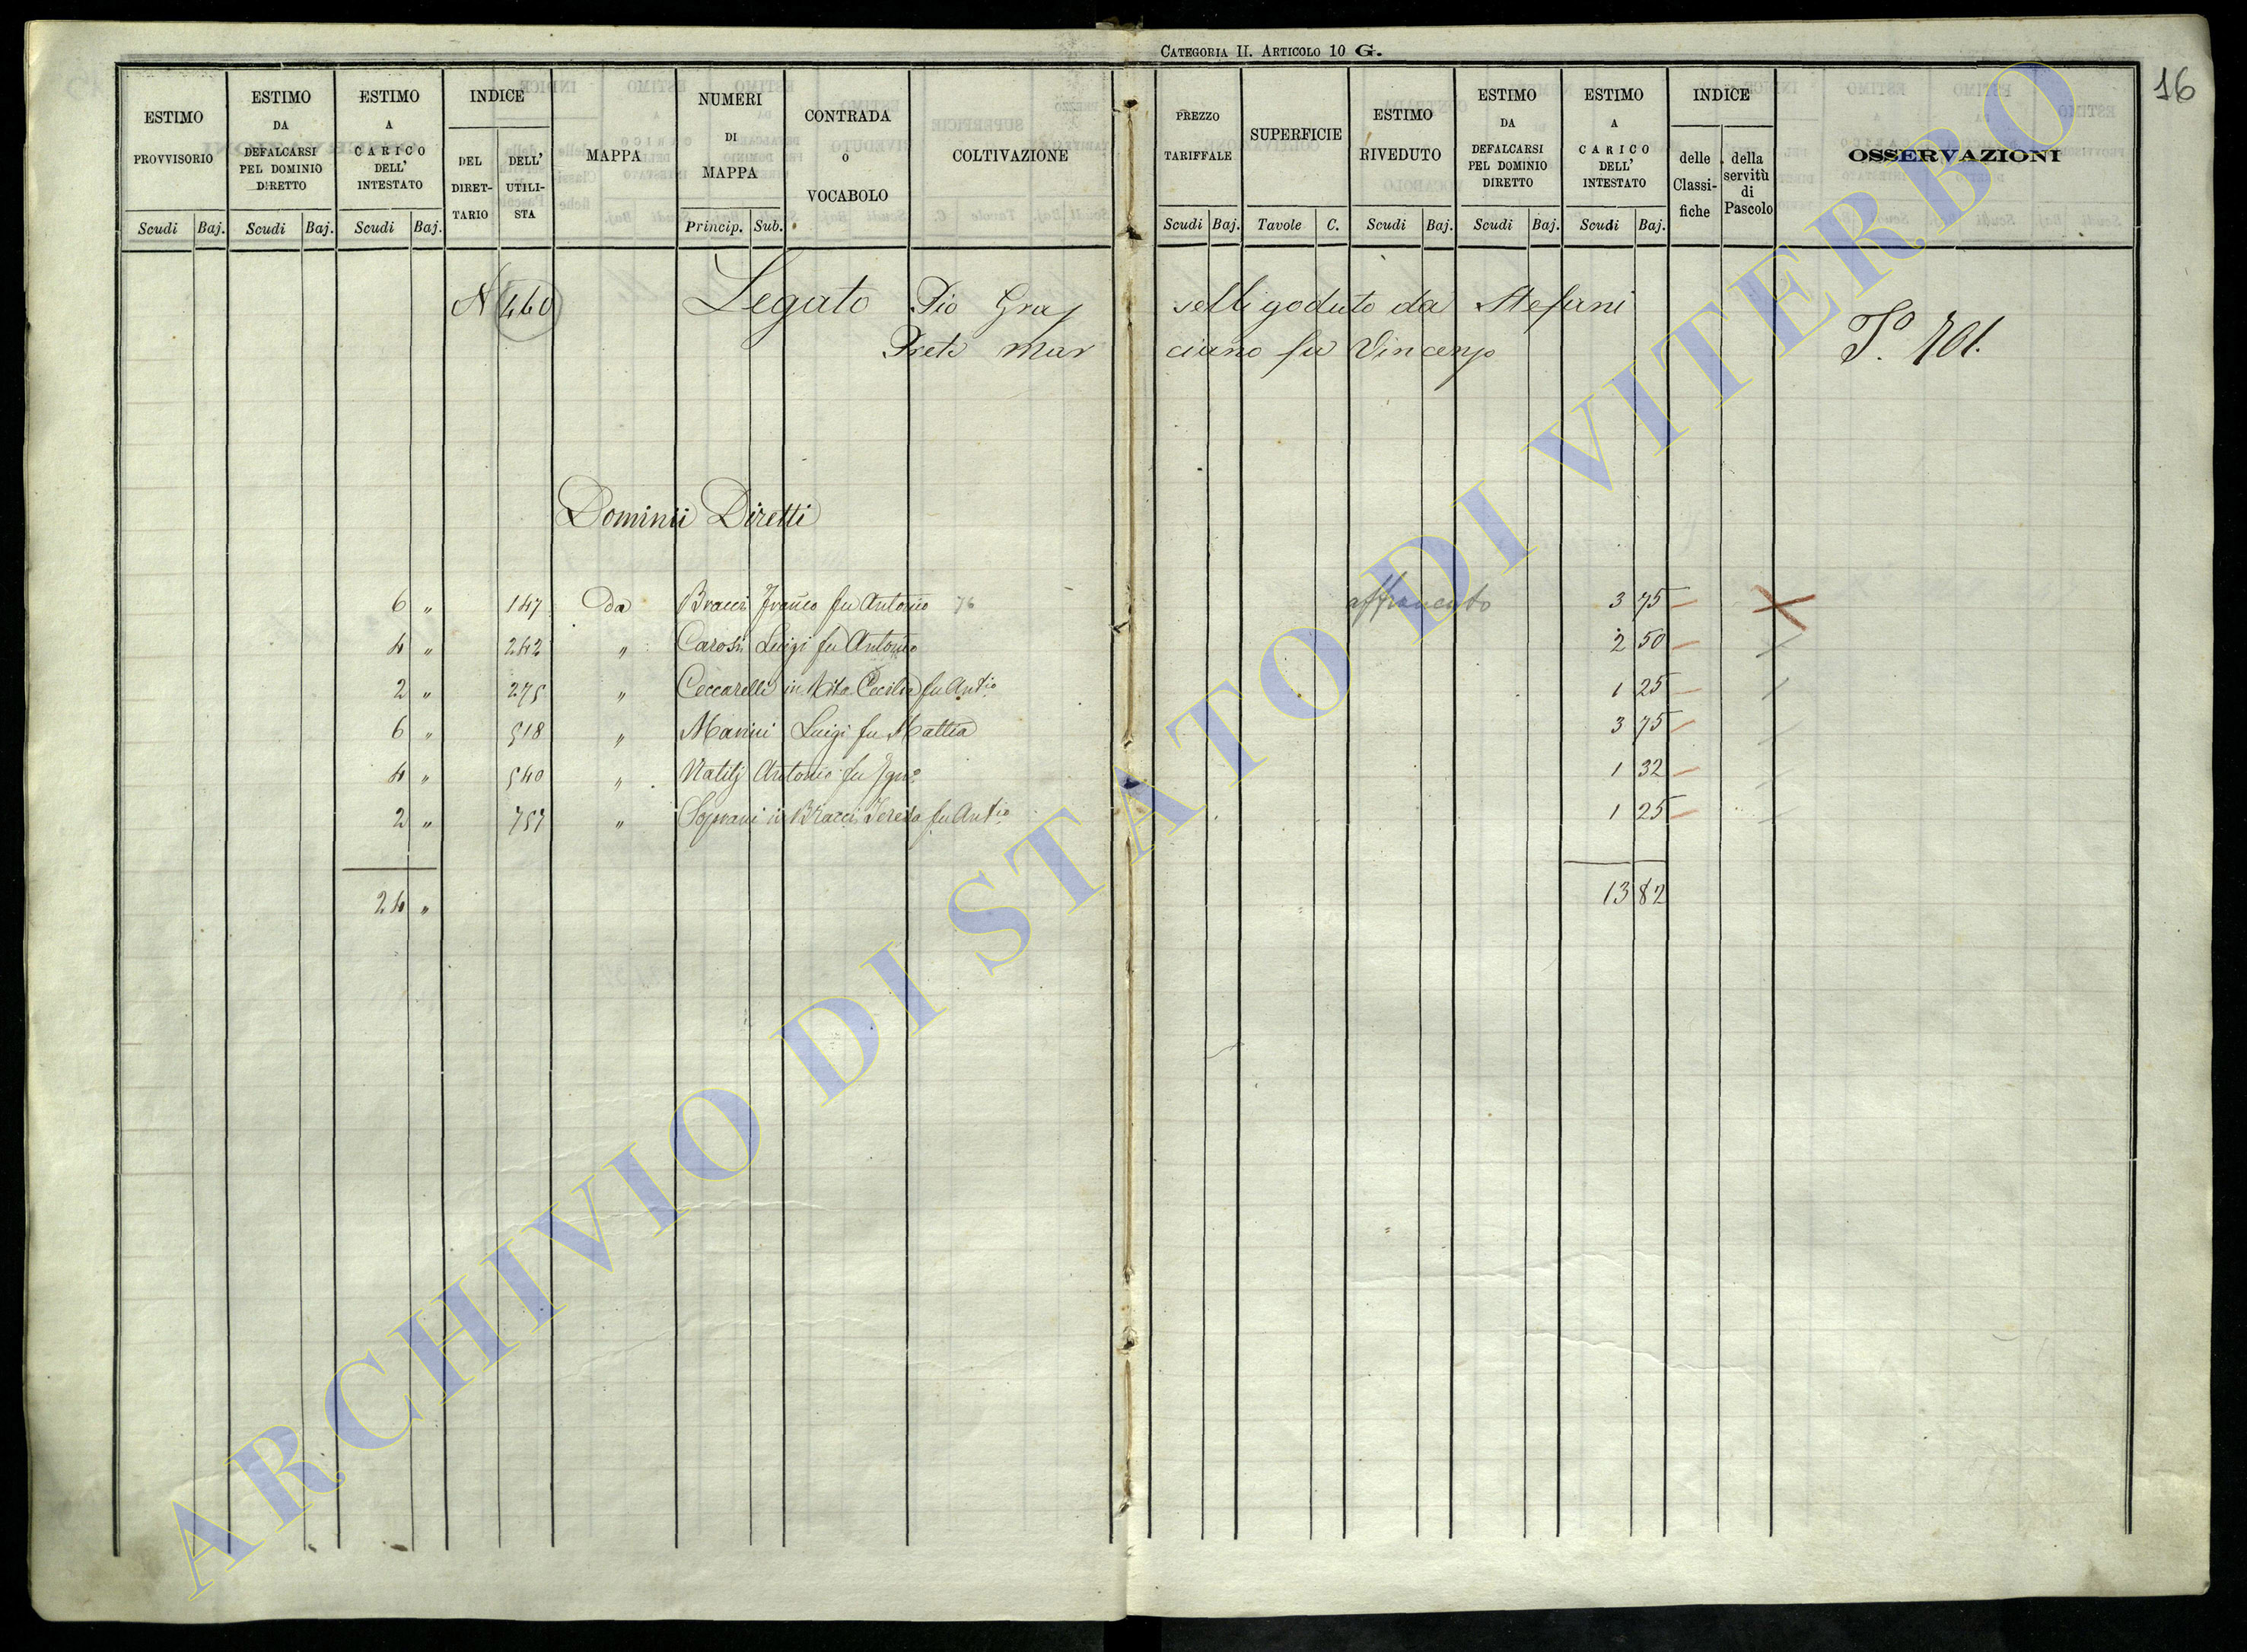 CATEGORIA II. ARTICOLO 10 G.
16
ESTIMO PROVVISORIO
ESTIMO DA DEFALCARSI PEL DOMINIO DIRETTO
ESTIMO A CARICO DELL' INTESTATO
INDICE
DEL DIRET-TARIO
DELL' UTILI-STA
MAPPA
NUMERI DI MAPPA
CONTRADA O VOCABOLO
COLTIVAZIONE
PREZZO TARIFFALE
SUPERFICIE
ESTIMO RIVEDUTO
ESTIMO DA DEFALCARSI PEL DOMINIO DIRETTO
ESTIMO A CARICO DELL' INTESTATO
INDICE
delle Classi-fiche
della servitù di Pascolo
OSSERVAZIONI
Scudi Baj. Scudi Baj. Scudi Baj. Princip. Sub. Scudi Baj. Tavole C. Scudi Baj. Scudi Baj. Scudi Baj.
N 460 Legato Pio Grasselli goduto da Stefani
Prete Marciano fu Vincenzo
Dominii Diretti
6 " 147 Da Bracci Franco fu Antonio 76 affrancato 3 75
4 " 242 " Carosi Luigi fu Antonio 2 50
2 " 275 " Ceccarelli in Cecilia fu Antio 1 25
6 " 518 " Marini Luigi fu Mattia 3 75
4 " 540 " Natilj Antonio fu 1 32
2 " 757 " in Bracci Teresa fu Antio 1 25
24 " 13 82
ARCHIVIO DI STATO DI VITERBO